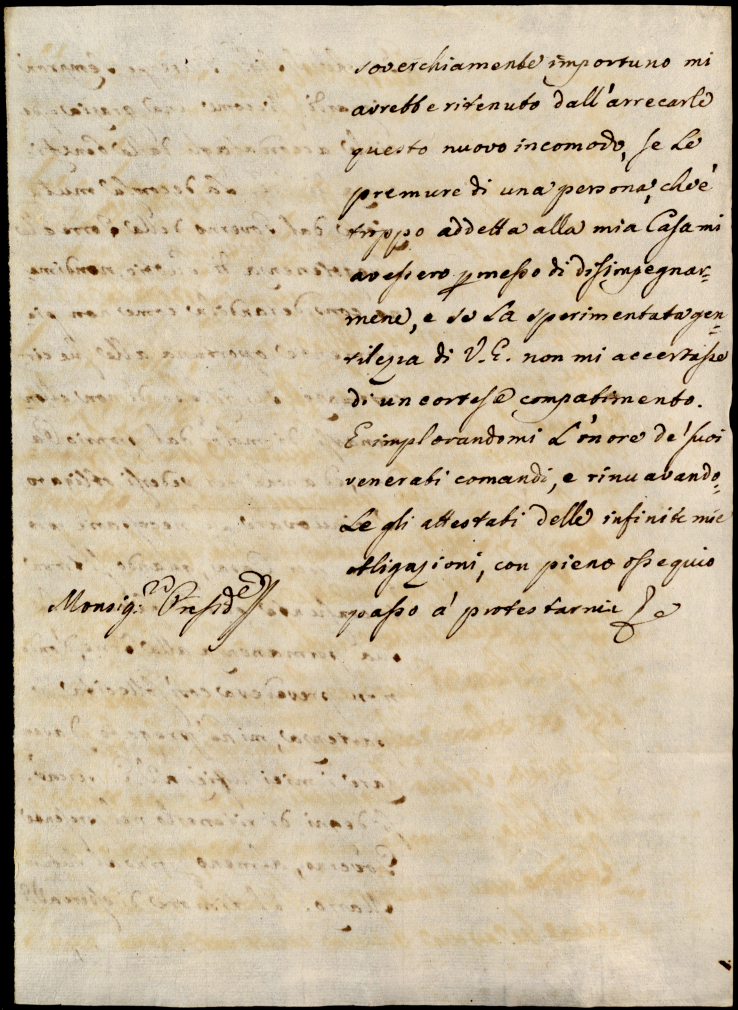 soverchiamente importuno mi
avrebbe ritenuto dall'arrecarle
questo nuovo incomodo, se Le
premure di una persona, ch'è
troppo addetta alla mia Casa mi
avessero pmesso di disimpegnar=
mene, e se La sperimentata gen=
tilezza di V.E. non mi accertasse
di un cortese compatimento.
E implorandomi L'onore de' suoi
venerati comandi, e rinuovando=
Le gli attestati delle infinite mie
obligazioni, con pieno ossequio
passo à protestarmi
Monsig.re Presid.e